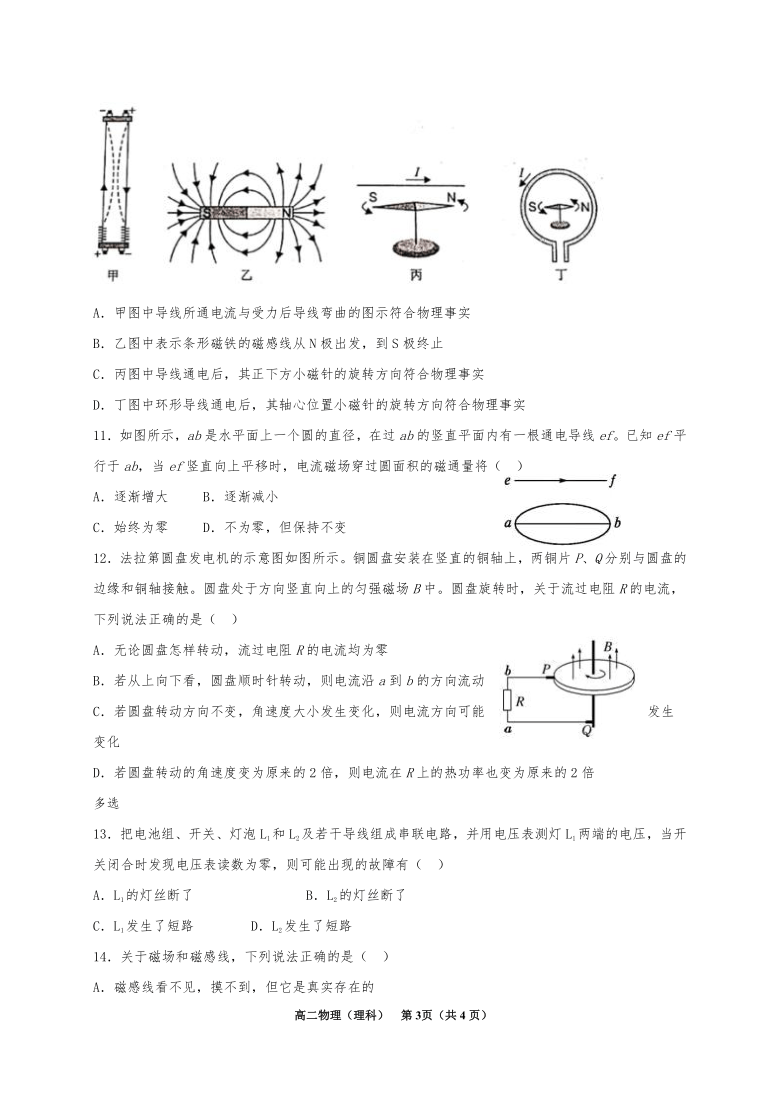 - + I I
S N S N S N
+ -
甲 乙 丙 丁
A．甲图中导线所通电流与受力后导线弯曲的图示符合物理事实
B．乙图中表示条形磁铁的磁感线从 N 极出发，到 S 极终止
C．丙图中导线通电后，其正下方小磁针的旋转方向符合物理事实
D．丁图中环形导线通电后，其轴心位置小磁针的旋转方向符合物理事实
11．如图所示，ab 是水平面上一个圆的直径，在过 ab 的竖直平面内有一根通电导线 ef。已知 ef 平
行于 ab，当 ef 竖直向上平移时，电流磁场穿过圆面积的磁通量将（ ）
e f
A．逐渐增大 B．逐渐减小
C．始终为零 D．不为零，但保持不变
a b
12．法拉第圆盘发电机的示意图如图所示。铜圆盘安装在竖直的铜轴上，两铜片 P、Q 分别与圆盘的
边缘和铜轴接触。圆盘处于方向竖直向上的匀强磁场 B 中。圆盘旋转时，关于流过电阻 R 的电流，
下列说法正确的是（ ）
A．无论圆盘怎样转动，流过电阻 R 的电流均为零
B．若从上向下看，圆盘顺时针转动，则电流沿 a 到 b 的方向流动
C．若圆盘转动方向不变，角速度大小发生变化，则电流方向可能 发生
变化
B
b P
R
a Q
D．若圆盘转动的角速度变为原来的 2 倍，则电流在 R 上的热功率也变为原来的 2 倍
多选
13．把电池组、开关、灯泡 L₁和 L₂及若干导线组成串联电路，并用电压表测灯 L₁两端的电压，当开
关闭合时发现电压表读数为零，则可能出现的故障有（ ）
A．L₁的灯丝断了 B．L₂的灯丝断了
C．L₁发生了短路 D．L₂发生了短路
14．关于磁场和磁感线，下列说法正确的是（ ）
A．磁感线看不见，摸不到，但它是真实存在的
高二物理（理科） 第 3页（共 4 页）